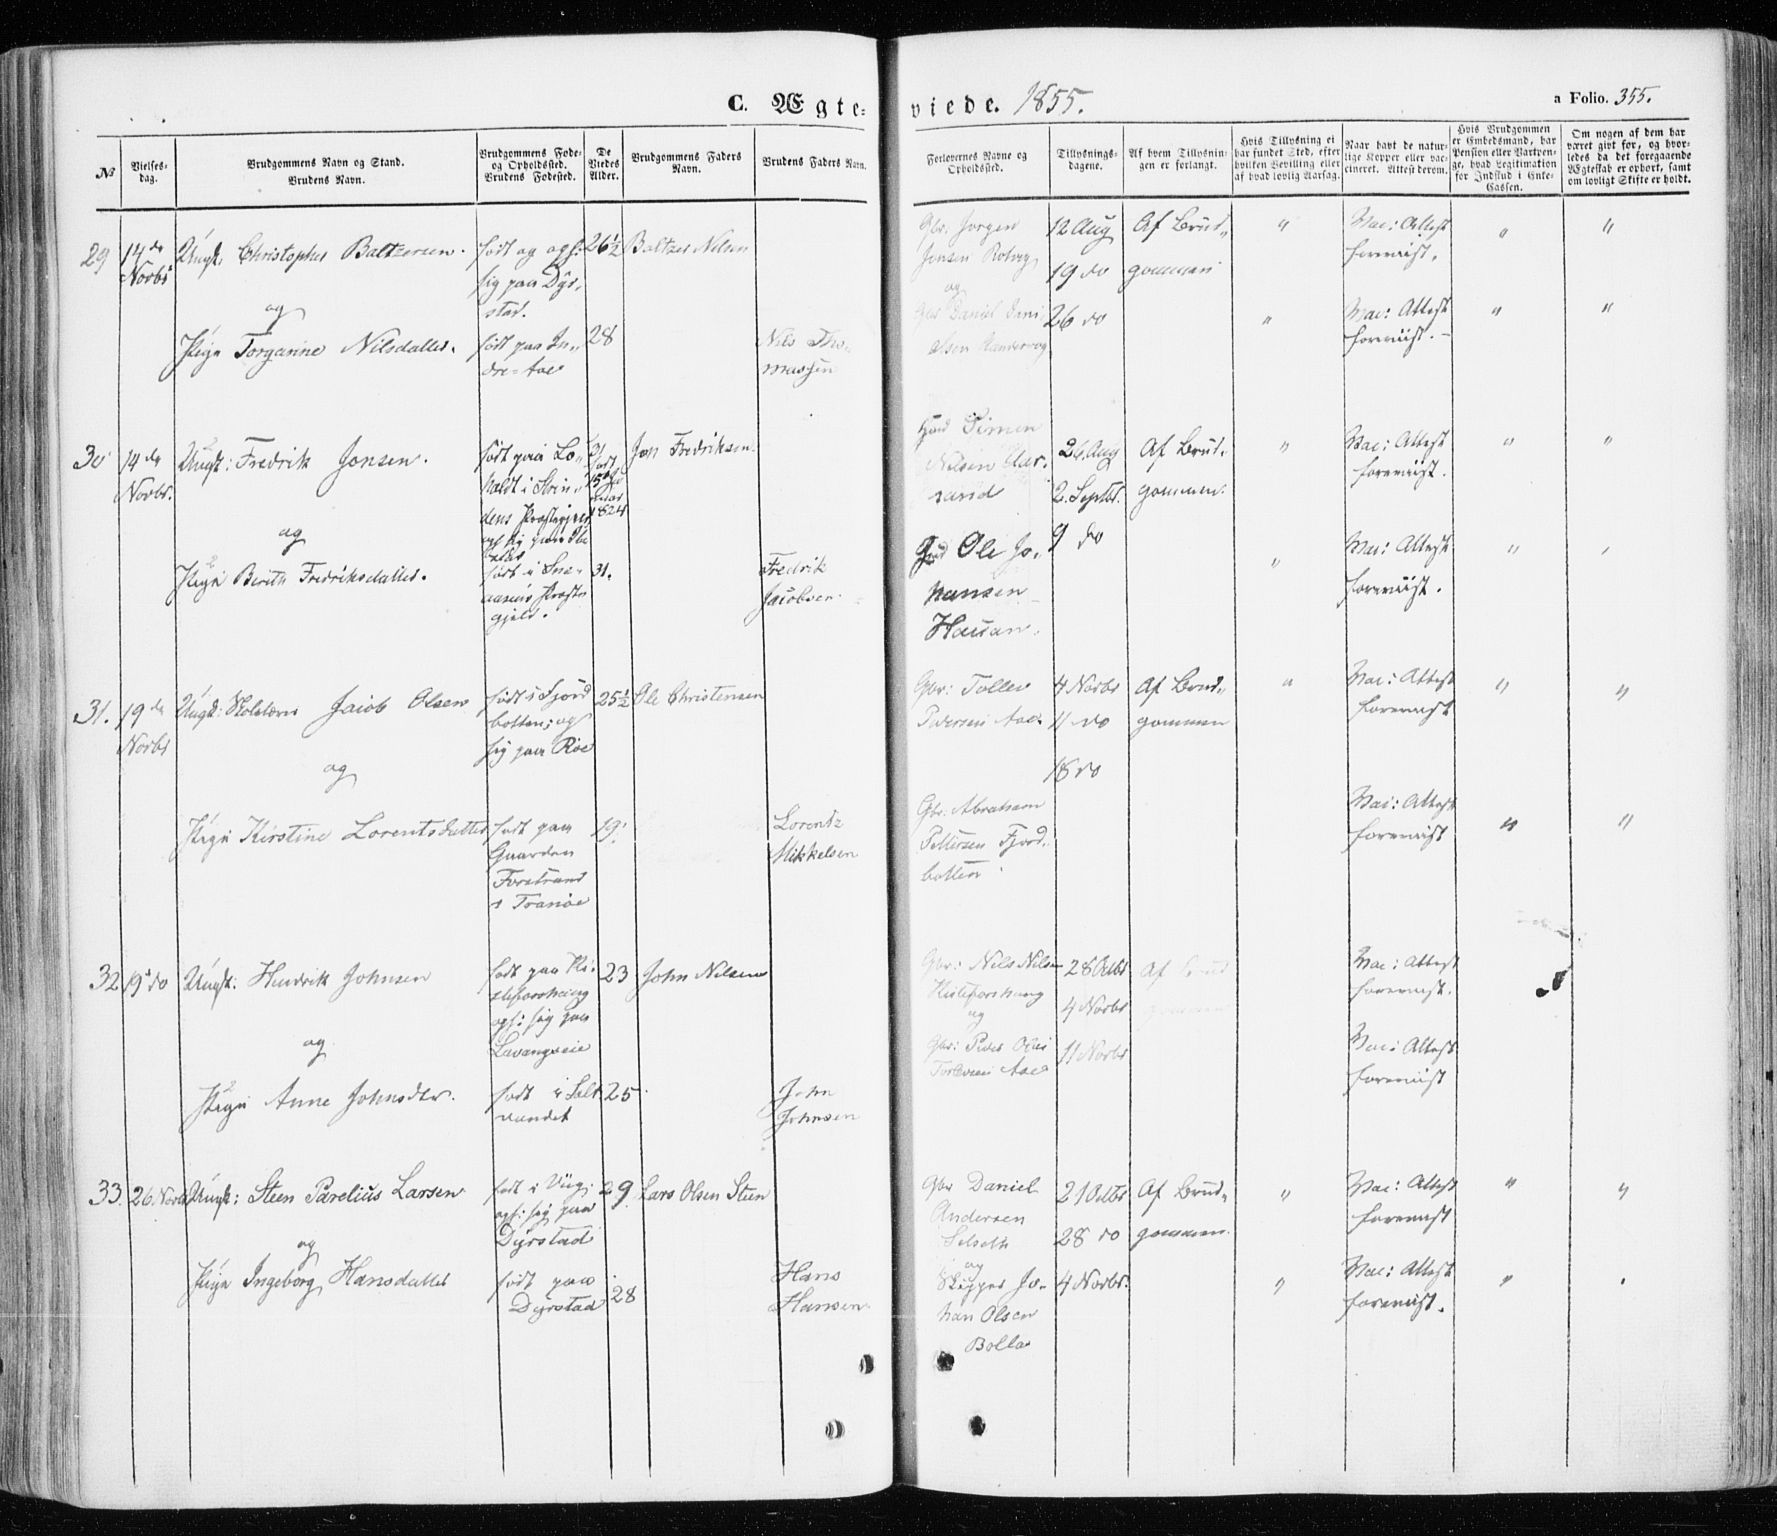 C. Ægteviede. 1855.
a Folio. 355.
No
Vielsesdag.
Brudgommens Navn og Stand.
Brudens Navn.
Brudgommens Føde- og Opholdssted.
Brudens Fødested.
De Viedes Alder.
Brudgommens Faders Navn.
Brudens Faders Navn.
Forlovernes Navne og Opholdssted.
Tillysningsdagene.
Af hvem Tillysningen er forlangt.
Hvis Tillysning ei har fundet Sted, efter hvilken Bevilling eller af hvad lovlig Aarsag.
Naar havt de naturlige Kopper eller vaccineret. Attest derom.
Hvis Brudgommen er Embedsmand, har Pension eller Vartpenge, hvad Legitimation for Indskud i Enke-Cassen.
Om nogen af dem har været gift før, og hvorledes da det foregaaende Ægteskab er ophørt, samt om lovligt Skifte er holdt.
29
14de Novbr
Ungk: Christopher Baltzersen.
født og oph: sig paa Dyrstad.
26½
Baltzer Nilsen
Gbr. Jørgen Jensen
og
12 Aug
19 do
26 do
Af Brudgommen
"
Vac: Attest foreviist.
"
"
og
Pige Torgarine Nilsdatter.
født paa Indre-Aae
28
Nils Thomassen
Gbr Daniel
"
Vac: Attest foreviist.
"
"
30
14de Novbr.
Ungk: Fredrik Jonsen.
født paa i Strindens Præstegjeld
født 15de 1824
Jon Fredriksen
Simen Nilsen
26 Aug
2. Septbr.
9 do
Af Brudgommen.
"
Vac: Attest foreviist.
"
"
og
Pige Berith Fredriksdatter.
født i Snaasens Præstegjeld.
31.
Fredrik Jacobsen
Ole Johansen Hausan.
"
Vac: Attest foreviist.
"
31.
19de Novbr
Ungk: Jacob Olsen
født i Fjordbotten; op sig paa Røe
25½
Ole Christensen
Gbr: Tollev Pedersen Aae.
4 Novbr
11 do
18 do
Af Brudgommen
"
Vac: Attest foreviist
"
"
og
Pige Kirstine Lorentsdatter
født paa Gaarden Forstrand i Tranøe
19.
Lorentz Mikkelsen
Gbr: Abraham Pettersen Fjordbotten
Vac: Attest foreviist
"
"
32
19 do
Ungk: Hendrik Johnsen
født paa oph: sig paa Lavangseie
23
John Nilsen
Gbr: Nils Nilsen
og
28 Octbr
4 Novbr
11 Novbr
Af Brudgommen
Vac: Attest foreviist.
og
Pige Anne Johnsdtr.
født i Saltvandet
25
John Johnsen
Gbr: Peder Aae
Vac: Attest foreviist
33.
26 Novbr
Ungk: Steen Parelius Larsen
født i oph: sig paa Dyrstad
29
Lars Olsen Steen
Gbr Daniel Andersen Selseth
og
21 Octbr
28 do
4 Novbr.
Af Brudgommen.
"
Vac: Attest foreviist
"
"
og
Pige Ingeborg Hansdatter
født paa Dyrstad
28
Hans Hansen.
Skipper Johan Olsen Bolla
"
Vac: Attest foreviist.
"